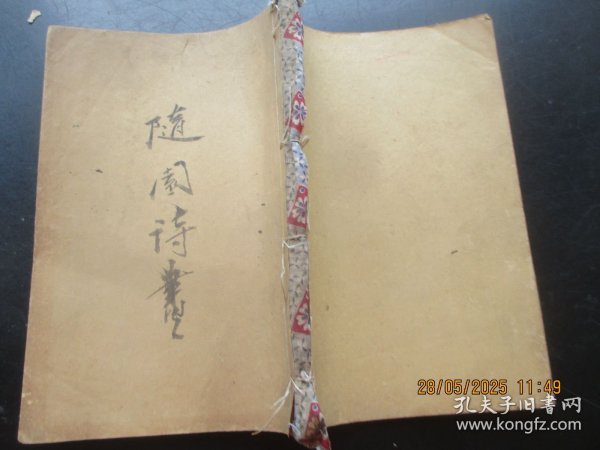 隨園诗
28/05/2025 11:49
孔夫子旧書网
www.kongfz.com